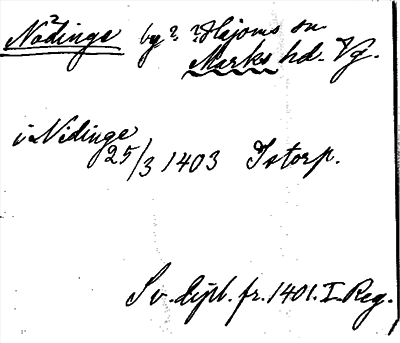 Nödinge by? ? Hajoms sn
Marks hd. Vg.
i Nidinge
25/3 1403 Istorp.
Sv. dipl. fr. 1401. I. Reg.